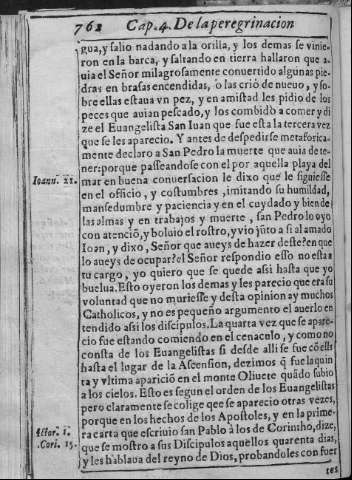 762 Cap. 4. De la peregrinacion
gua, y salio nadando a la orilla, y los demas se vinie-
ron en la barca, y saltando en tierra hallaron que a-
uia el Señor milagrosamente conuertido algunas pie-
dras en brasas encendidas, o las crió de nueuo, y so-
bre ellas estaua vn pez, y en amistad les pidio de los
peces que auian pescado, y los combidò a comer y di
ze el Euangelista San Iuan que fue esta la tercera vez
que se les aparecio. Y antes de despedirse metaforica-
mente declaro a San Pedro la muerte que auia de te-
ner: porque passeandose con el por aquella playa del
Ioann. 21.
mar en buena conuersacion le dixo que le siguiesse
en el officio, y costumbres, imitando su humildad,
mansedumbre y paciencia y en el cuydado y bien de
las almas y en trabajos y muerte, san Pedro lo oyo
con atenció, y boluio el rostro, y vio jūto a si al amado
Ioan, y dixo, Señor que aueys de hazer deste? en que
lo aueys de ocupar? el Señor respondio esso no esta a
tu cargo, yo quiero que se quede assi hasta que yo
buelua. Esto oyeron los demas y les parecio que era su
voluntad que no muriesse y desta opinion ay muchos
Catholicos, y no es pequeño argumento el auerlo en
tendido assi los discipulos. La quarta vez que se apare-
cio fue estando comiendo en el cenaculo, y como no
consta de los Euangelistas si desde alli se fue cō ellos
hasta el lugar de la Ascension, dezimos q̃ fue la quin
ta y vltima aparició en el monte Oliuete quādo subio
a los cielos. Esto es segun el orden de los Euangelistas
pero claramente se colige que se aparecio otras vezes,
porque en los hechos de los Apostoles, y en la prime-
Actor. 1.
ra carta que escriuio san Pablo à los de Corintho, dize,
.Cori. 15.
que se mostro a sus Discipulos aquellos quarenta dias,
y les hablaua del reyno de Dios, probandoles con fuer
tes